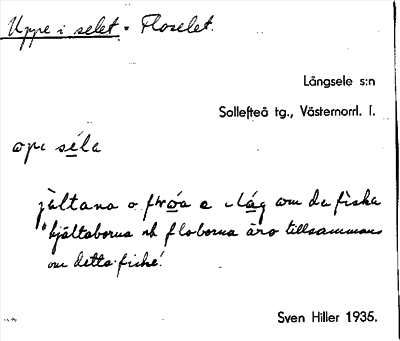 Uppe i selet = Floselet.
Långsele s:n
Sollefteå tg., Västernorrl. l.
opi séla
jältana o flóa e i låg om da fiska
"hjältaborna och floborna äro tillsammans
om detta fiske."
Sven Hiller 1935.